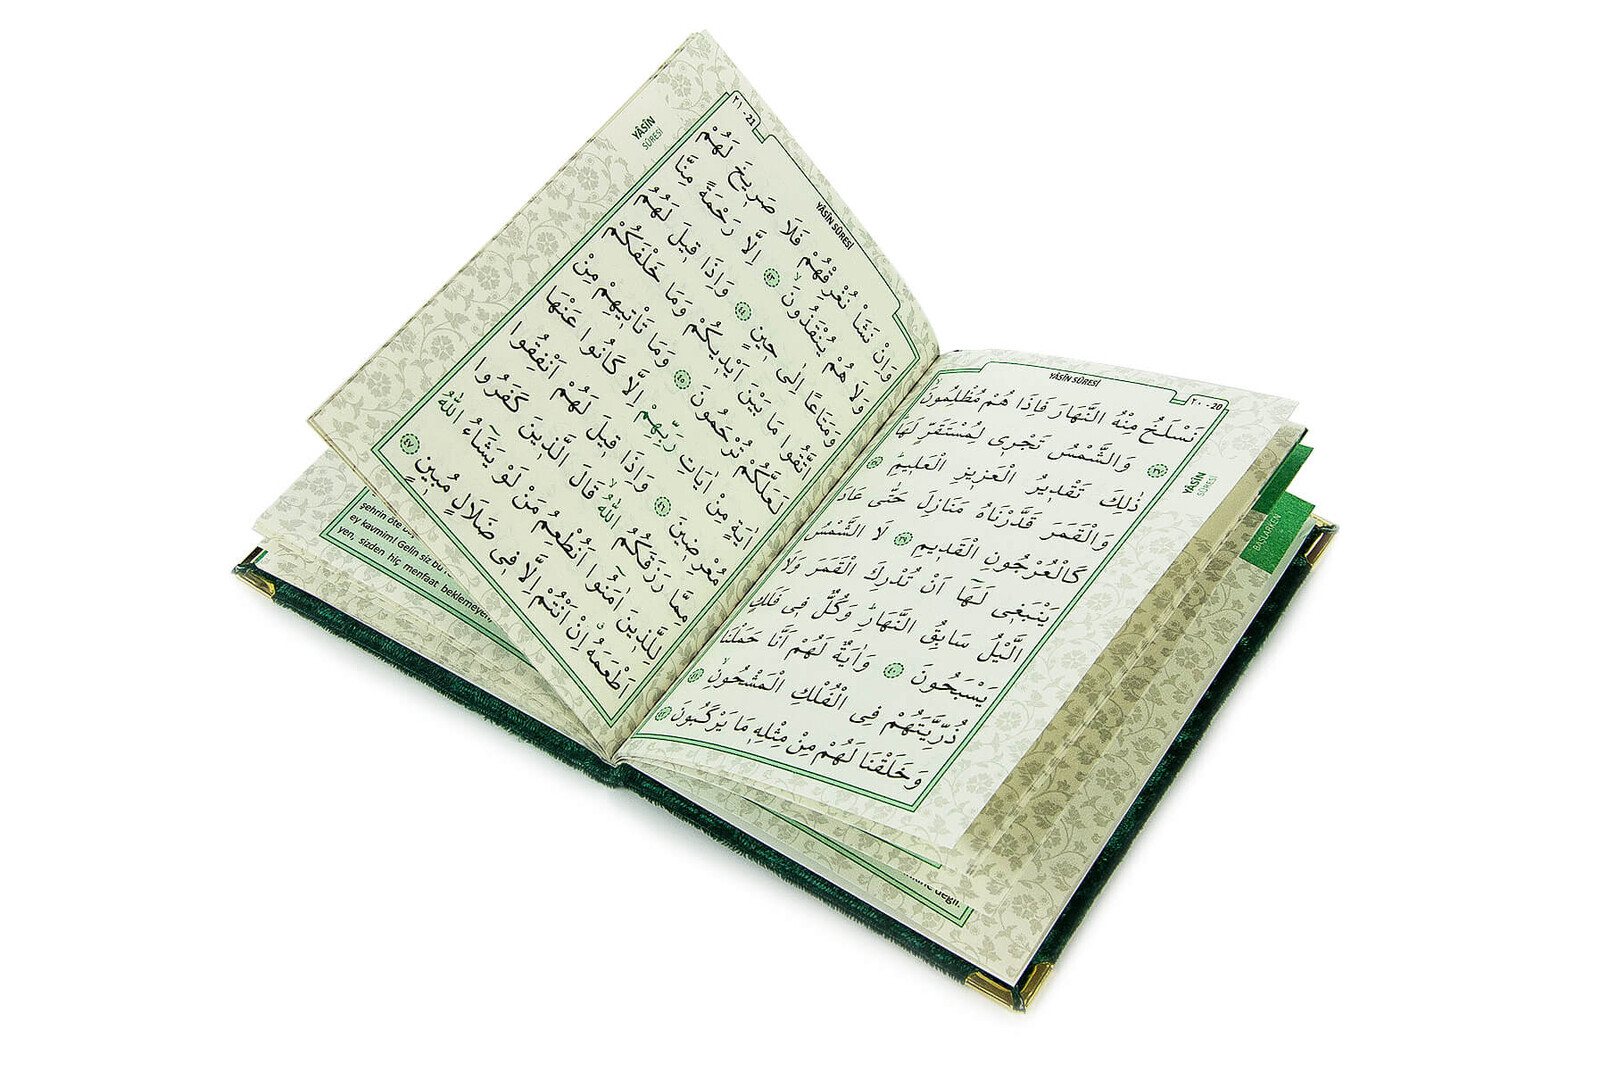 YÂSÎN SÛRESİ
٢٠ - 20
نَسْلَخُ مِنْهُ النَّهَارَ فَاِذَا هُمْ مُظْلِمُونَۙ
٣٧ وَالشَّمْسُ تَجْرٖى لِمُسْتَقَرٍّ لَهَاۜ
ذٰلِكَ تَقْدٖيرُ الْعَزٖيزِ الْعَلٖيمِۜ ٣٨
وَالْقَمَرَ قَدَّرْنَاهُ مَنَازِلَ حَتّٰى عَادَ
كَالْعُرْجُونِ الْقَدٖيمِ ٣٩ لَا الشَّمْسُ
يَنْبَغٖى لَهَٓا اَنْ تُدْرِكَ الْقَمَرَ وَلَا
الَّيْلُ سَابِقُ النَّهَارِۜ وَكُلٌّ فٖى فَلَكٍ
يَسْبَحُونَ ٤٠ وَاٰيَةٌ لَهُمْ اَنَّا حَمَلْنَا
ذُرِّيَّتَهُمْ فِى الْفُلْكِ الْمَشْحُونِۙ ٤١
وَخَلَقْنَا لَهُمْ مِنْ مِثْلِهٖ مَا يَرْكَبُونَ ٤٢
YÂSÎN
SÛRESİ
BAŞLARKEN
değil.
YÂSÎN SÛRESİ
٢١ - 21
وَاِنْ نَشَأْ نُغْرِقْهُمْ فَلَا صَرٖيخَ لَهُمْ
وَلَا هُمْ يُنْقَذُونَۙ ٤٣ اِلَّا رَحْمَةً مِنَّا
وَمَتَاعًا اِلٰى حٖينٍ ٤٤ وَاِذَا قٖيلَ لَهُمُ
اتَّقُوا مَا بَيْنَ اَيْدٖيكُمْ وَمَا خَلْفَكُمْ
لَعَلَّكُمْ تُرْحَمُونَ ٤٥ وَمَا تَأْتٖيهِمْ مِنْ
اٰيَةٍ مِنْ اٰيَاتِ رَبِّهِمْ اِلَّا كَانُوا عَنْهَا
مُعْرِضٖينَ ٤٦ وَاِذَا قٖيلَ لَهُمْ اَنْفِقُوا
مِمَّا رَزَقَكُمُ اللّٰهُۙ قَالَ الَّذٖينَ كَفَرُوا
لِلَّذٖينَ اٰمَنُٓوا اَنُطْعِمُ مَنْ لَوْ يَشَٓاءُ اللّٰهُ
اَطْعَمَهُۗ اِنْ اَنْتُمْ اِلَّا فٖى ضَلَالٍ مُبٖينٍ ٤٧
YÂSÎN
SÛRESİ
şehrin öte
ey kavmim! Gelin siz bu
yen, sizden hiç menfaat beklemeyen,